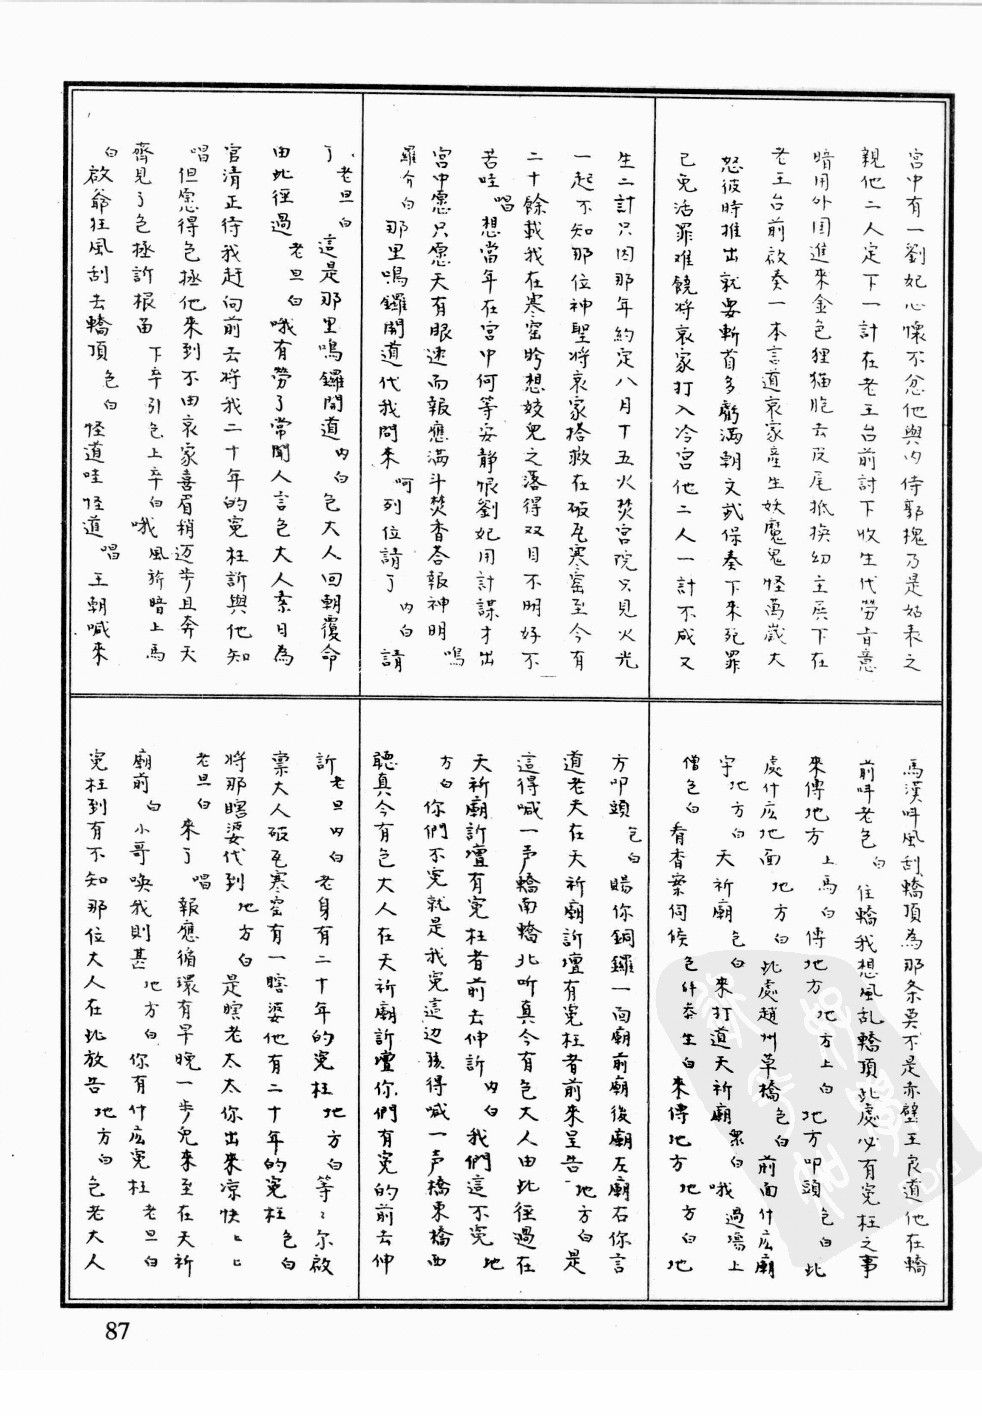 宮中有一劉妃心懷不忿他與內侍郭槐乃是姑表之
親他二人定下一計在老王台前討下收生代勞旨意
暗用外国進來金色狸猫脱去皮尾抵换幼主辰下在
老王台前啟奏一本言道哀家產生妖魔鬼怪萬歲大
怒彼時推出就要斬首多虧滿朝文武保奏下來死罪
已免活罪难饒将哀家打入冷宮他二人一計不成又
生二計只因那年約定八月十五火焚宮院只見火光
一起不知那位神聖将哀家搭救在破瓦寒窑至今有
二十餘載我在寒窑盼想姣兒之落得双目不明好不
苦哇 唱 想當年在宮中何等安静恨劉妃用計謀才出
宮中愿只愿天有眼速而報應满斗焚香荅報神明 鳴
羅介 白 那里鳴鑼開道代我問來 呵 列位請了 內白 請
了 老旦白 這是那里鳴鑼開道 內白 包大人回朝覆命
由此徑過 老旦白 哦有勞了常聞人言包大人素日為
官清正待我赶向前去将我二十年的冤枉訴與他知
唱 但愿得包拯他來到不由哀家喜眉稍迈步且奔天
齊見了包拯訴根苗 下卒引包上卒白 哦 風旂暗上馬
白 啟爺狂風刮去轎頂 包白 怪道哇怪道 唱 王朝喊來
馬漢呌風刮轎頂為那条莫不是赤壁王良道他在轎
前呌老包 白 住轎我想風乱轎頂此處必有冤枉之事
來傳地方 上馬白 傳地方 地方上白 地方叩頭 包白 此
處什庅地面 地方白 此處趙州草橋 包白 前面什庅廟
宇 地方白 天祈廟 包白 來打道天祈廟 衆白 哦 過塲上
僧包白 看香案伺候 包拜 白 來傳地方 地方白 地
方叩頭 包白 賜你銅鑼一面廟前廟後廟左廟右你言
道老夫在天祈廟訴壇有冤枉者前來呈告 地方白 是
這得喊一声轎南轎北听真今有包大人由此徑過在
天祈廟訴壇有冤枉者前去伸訴 內白 我們這不冤 地
方白 你們不冤就是我冤這边孩得喊一声橋東橋西
聽真今有包大人在天祈廟訴壇你們有冤的前去伸
訴 老旦內白 老身有二十年的冤枉 地方白 等〻尔啟
禀大人破瓦寒窑有一瞎婆他有二十年的冤枉 包白
将那瞎婆代到 地方白 是瞎老太太你出來凉快〻〻
老旦白 來了 唱 報應循環有早晚一步兒來至在天祈
廟前 白 小哥唤我則甚 地方白 你有什庅冤枉 老旦白
冤枉到有不知那位大人在此放告 地方白 包老大人
87